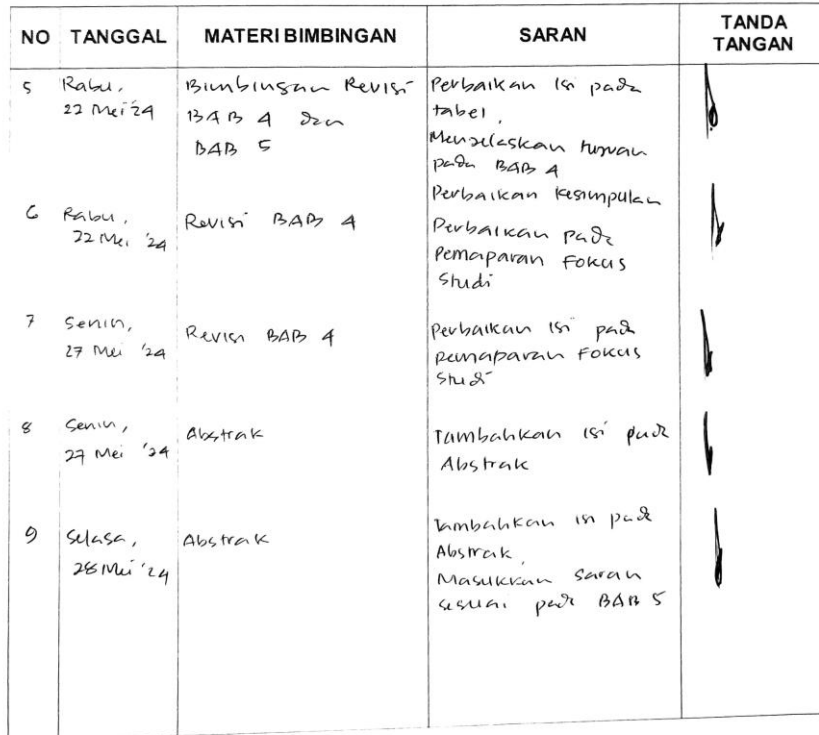 NO TANGGAL MATERI BIMBINGAN SARAN TANDA TANGAN
5 Rabu, 22 Mei '24
Bimbingan Revisi
BAB 4 dan
BAB 5
Perbaikan Isi pada
tabel,
Menjelaskan tujuan
pada BAB 4
Perbaikan Kesimpulan
6 Rabu, 22 Mei '24
Revisi BAB 4
Perbaikan pada
Pemaparan Fokus
Studi
7 Senin, 27 Mei '24
Revisi BAB 4
Perbaikan Isi pada
pemaparan Fokus
Studi
8 Senin, 27 Mei '24
Abstrak
Tambahkan isi pada
Abstrak
9 Selasa, 28 Mei '24
Abstrak
Tambahkan isi pada
Abstrak,
Masukkan saran
sesuai pada BAB 5